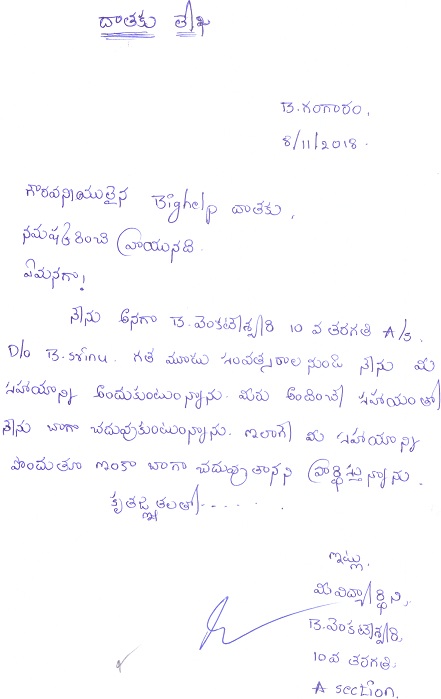 దాతకు లేఖ
B. గంగారం,
8/11/2018.
గౌరవనీయులైన Bighelp దాతకు,
నమష్కరించి వ్రాయునది.
ఏమనగా!
నేను అనగా B. వెంకటేశ్వరి 10 వ తరగతి A/s,
D/o B. srinu. గత మూడు సంవత్సరాల నుండి నేను మీ
సహాయాన్ని అందుకుంటున్నాను. మీరు అందించే సహాయంతో
నేను బాగా చదువుకుంటున్నాను. ఇలాగే మీ సహాయాన్ని
పొందుతూ ఇంకా బాగా చదువుతానని ప్రార్థిస్తున్నాను.
కృతజ్ఞతలతో......
ఇట్లు,
మీ విద్యార్థిని,
B. వెంకటేశ్వరి,
10వ తరగతి,
A section.